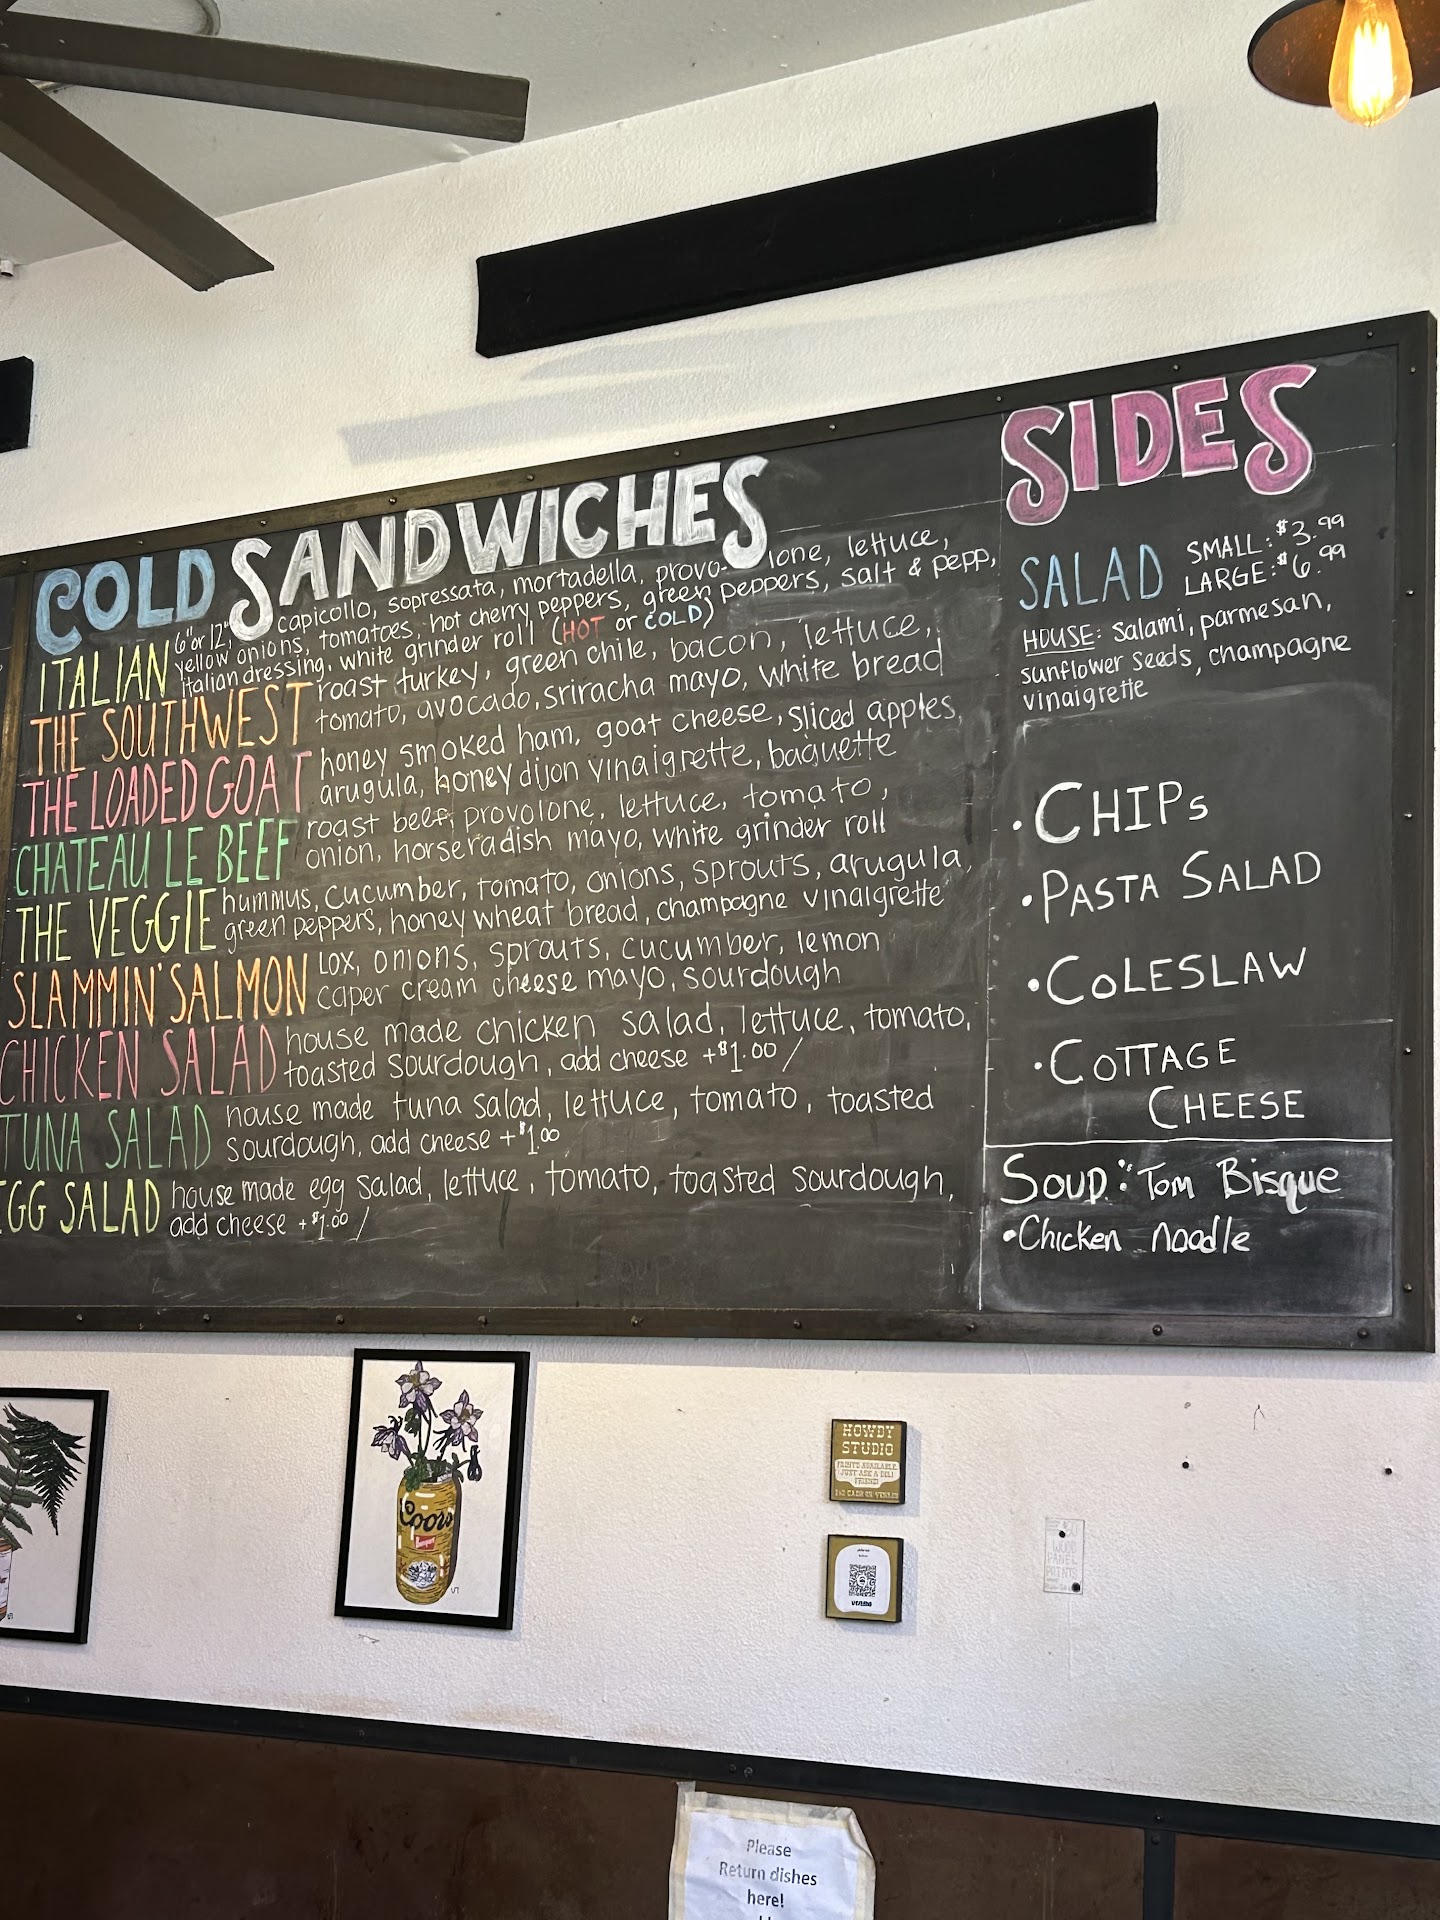 COLD SANDWICHES
ITALIAN 6" or 12", capicollo, sopressata, mortadella, provo- lone, lettuce,
yellow onions, tomatoes, hot cherry peppers, green peppers, salt & pepp,
italian dressing, white grinder roll (HOT or COLD)
THE SOUTHWEST roast turkey, green chile, bacon, lettuce,
tomato, avocado, sriracha mayo, white bread
THE LOADED GOAT honey smoked ham, goat cheese, sliced apples,
arugula, honey dijon vinaigrette, baguette
CHATEAU LE BEEF roast beef, provolone, lettuce, tomato,
onion, horseradish mayo, white grinder roll
THE VEGGIE hummus, cucumber, tomato, onions, sprouts, arugula,
green peppers, honey wheat bread, champagne vinaigrette
SLAMMIN' SALMON lox, onions, sprouts, cucumber, lemon
caper cream cheese mayo, sourdough
CHICKEN SALAD house made chicken salad, lettuce, tomato,
toasted sourdough, add cheese +$1.00 /
TUNA SALAD house made tuna salad, lettuce, tomato, toasted
sourdough, add cheese +$1.00
EGG SALAD house made egg salad, lettuce, tomato, toasted sourdough,
add cheese +$1.00 /
SIDES
SALAD SMALL: $3.99
LARGE: $6.99
HOUSE: salami, parmesan,
sunflower seeds, champagne
vinaigrette
• CHIPs
• PASTA SALAD
• COLESLAW
• COTTAGE
CHEESE
SOUP: Tom Bisque
• Chicken noodle
Coors
Banquet
HOWDY
STUDIO
PRINTS AVAILABLE,
JUST ASK A DELI
venmo
WOOD
PANEL
PRINTS
Please
Return dishes
here!